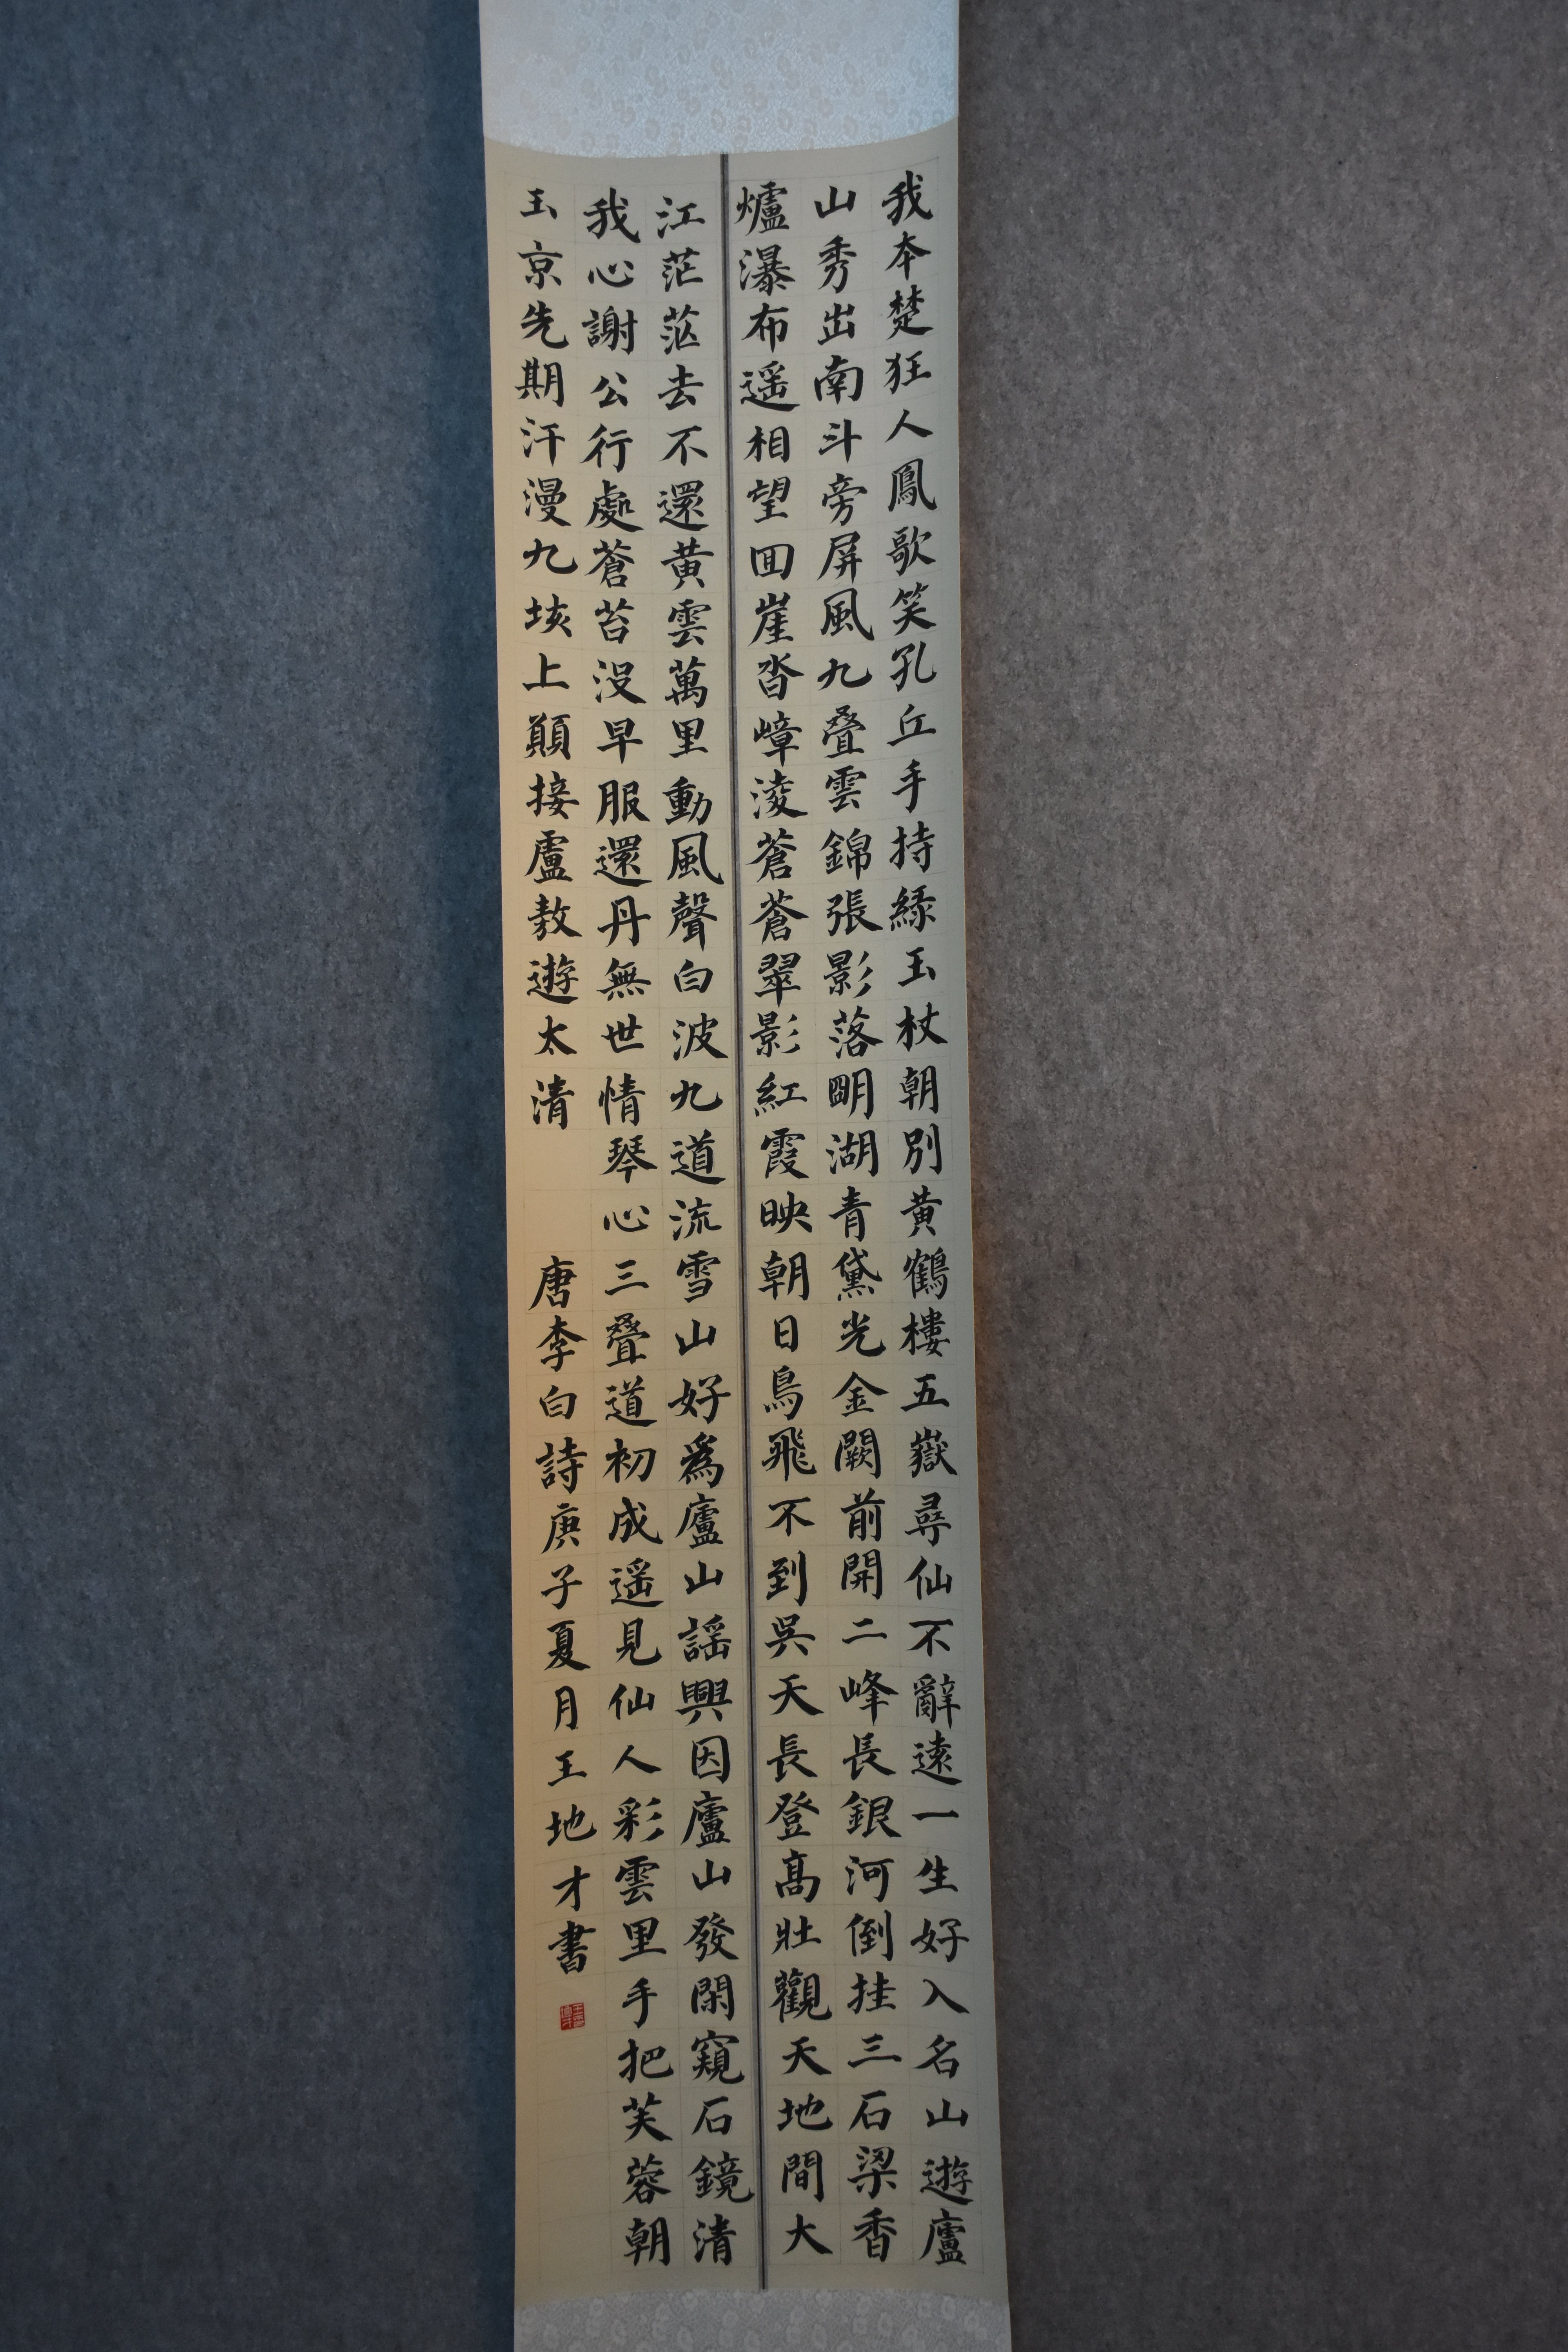 我本楚狂人鳳歌笑孔丘手持緑玉杖朝別黄鶴樓五嶽尋仙不辭遠一生好入名山遊廬
山秀出南斗旁屏風九叠雲錦張影落明湖青黛光金闕前開二峰長銀河倒挂三石梁香
爐瀑布遥相望回崖沓嶂淩蒼蒼翠影紅霞映朝日鳥飛不到吳天長登髙壯觀天地間大
江茫茫去不還黄雲萬里動風聲白波九道流雪山好為廬山謡興因廬山發閑窺石鏡清
我心謝公行處蒼苔没早服還丹無世情琴心三叠道初成遥見仙人彩雲里手把芙蓉朝
玉京先期汗漫九垓上顚接盧敖遊太清
唐李白詩庚子夏月王地才書